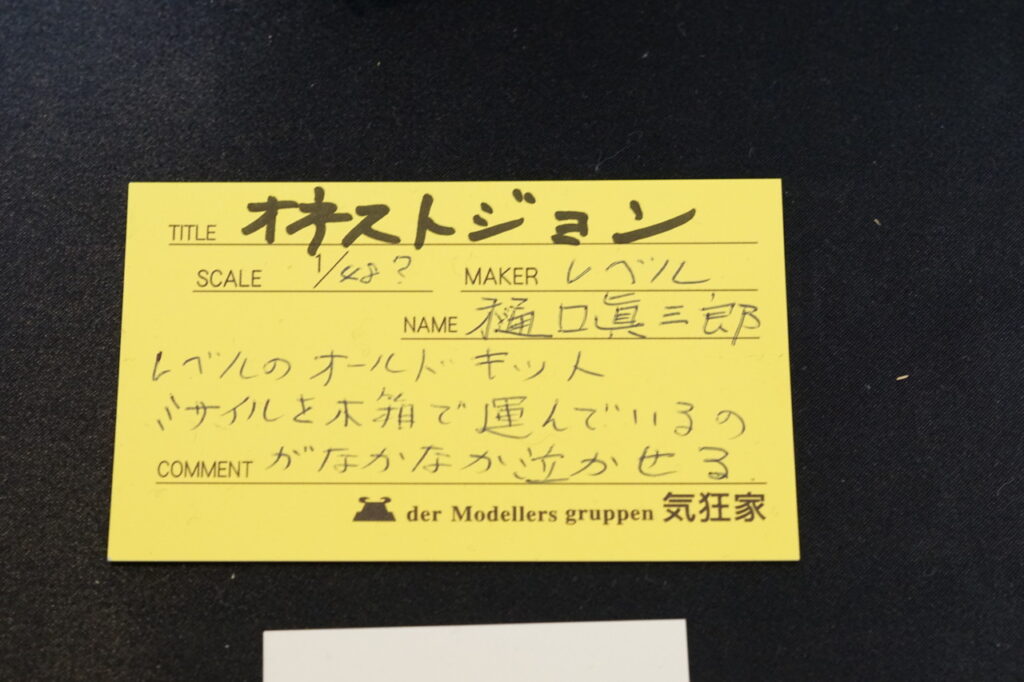 TITLE オネストジョン
SCALE 1/48? MAKER レベル
NAME 樋口眞三郎
レベルのオールドキット
ミサイルを木箱で運んでいるの
COMMENT がなかなか泣かせる
der Modellers gruppen 気狂家